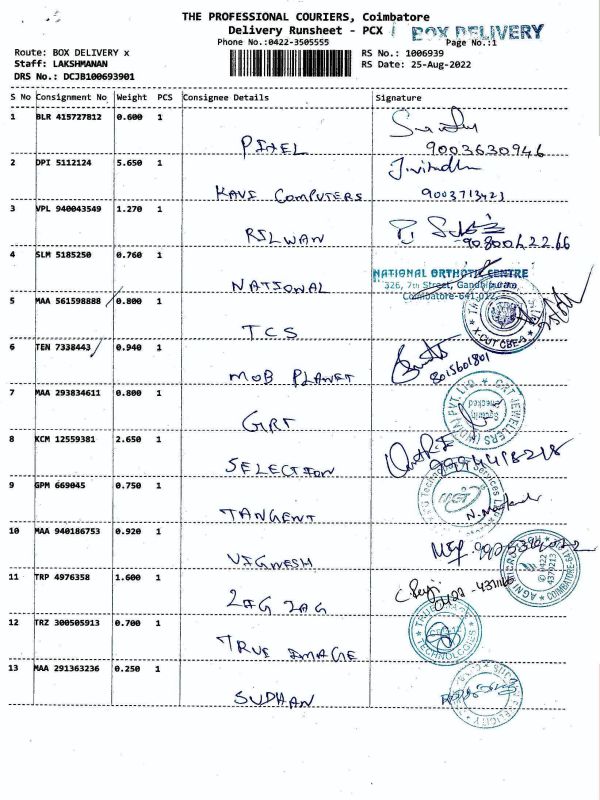 THE PROFESSIONAL COURIERS, Coimbatore
Delivery Runsheet - PCX / BOX DELIVERY
Phone No.:0422-3505555 Page No.:1
Route: BOX DELIVERY x RS No.: 1006939
Staff: LAKSHMANAN RS Date: 25-Aug-2022
DRS No.: DCJB100693901
S No Consignment No Weight PCS Consignee Details Signature
1 BLR 415727812 0.600 1
PIXEL 9003630946
2 DPI 5112124 5.650 1
KAVI COMPUTERS 9003713423
3 VPL 940043549 1.270 1
RILWAN 9080042266
4 SLM 5185250 0.760 1
NATIONAL
NATIONAL ORTHOTIC CENTRE
326, 7th Street, Gandhipuram
Coimbatore-641 012
5 MAA 561598888 0.800 1
TCS
X-CUT CBE-9
6 TEN 7338443 0.940 1
MOB PLANET 8015601801
7 MAA 293834611 0.800 1
GRT
GRT JEWELLERS (INDIA) PVT. LTD.
Security Checked
8 KCM 12559381 2.650 1
SELECTION 9994418218
9 GPM 669045 0.750 1
TANGENT
10 MAA 940186753 0.920 1
VIGNESH
11 TRP 4976358 1.600 1
ZIG ZAG
12 TRZ 300505913 0.700 1
TRUE IMAGE
TECHNOLOGIES
13 MAA 291363236 0.250 1
SUDHAN